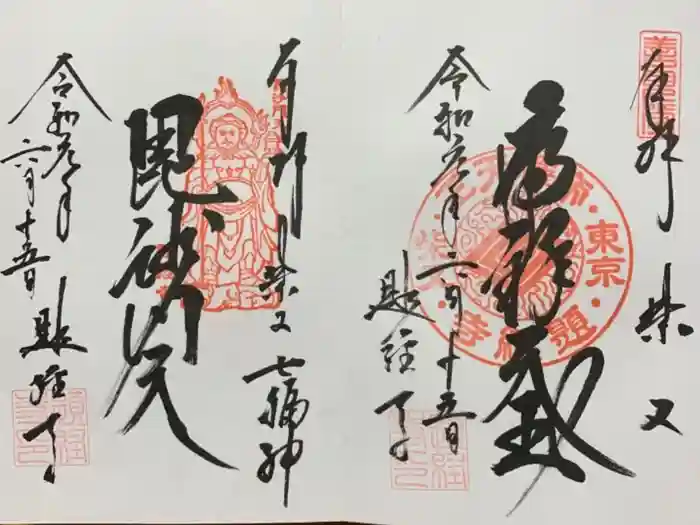 奉拝 柴又
帝釋天
令和元年六月十五日
題経寺
東京
題経寺
奉拝 柴又七福神
毘沙門天
令和元年
六月十五日 題経寺